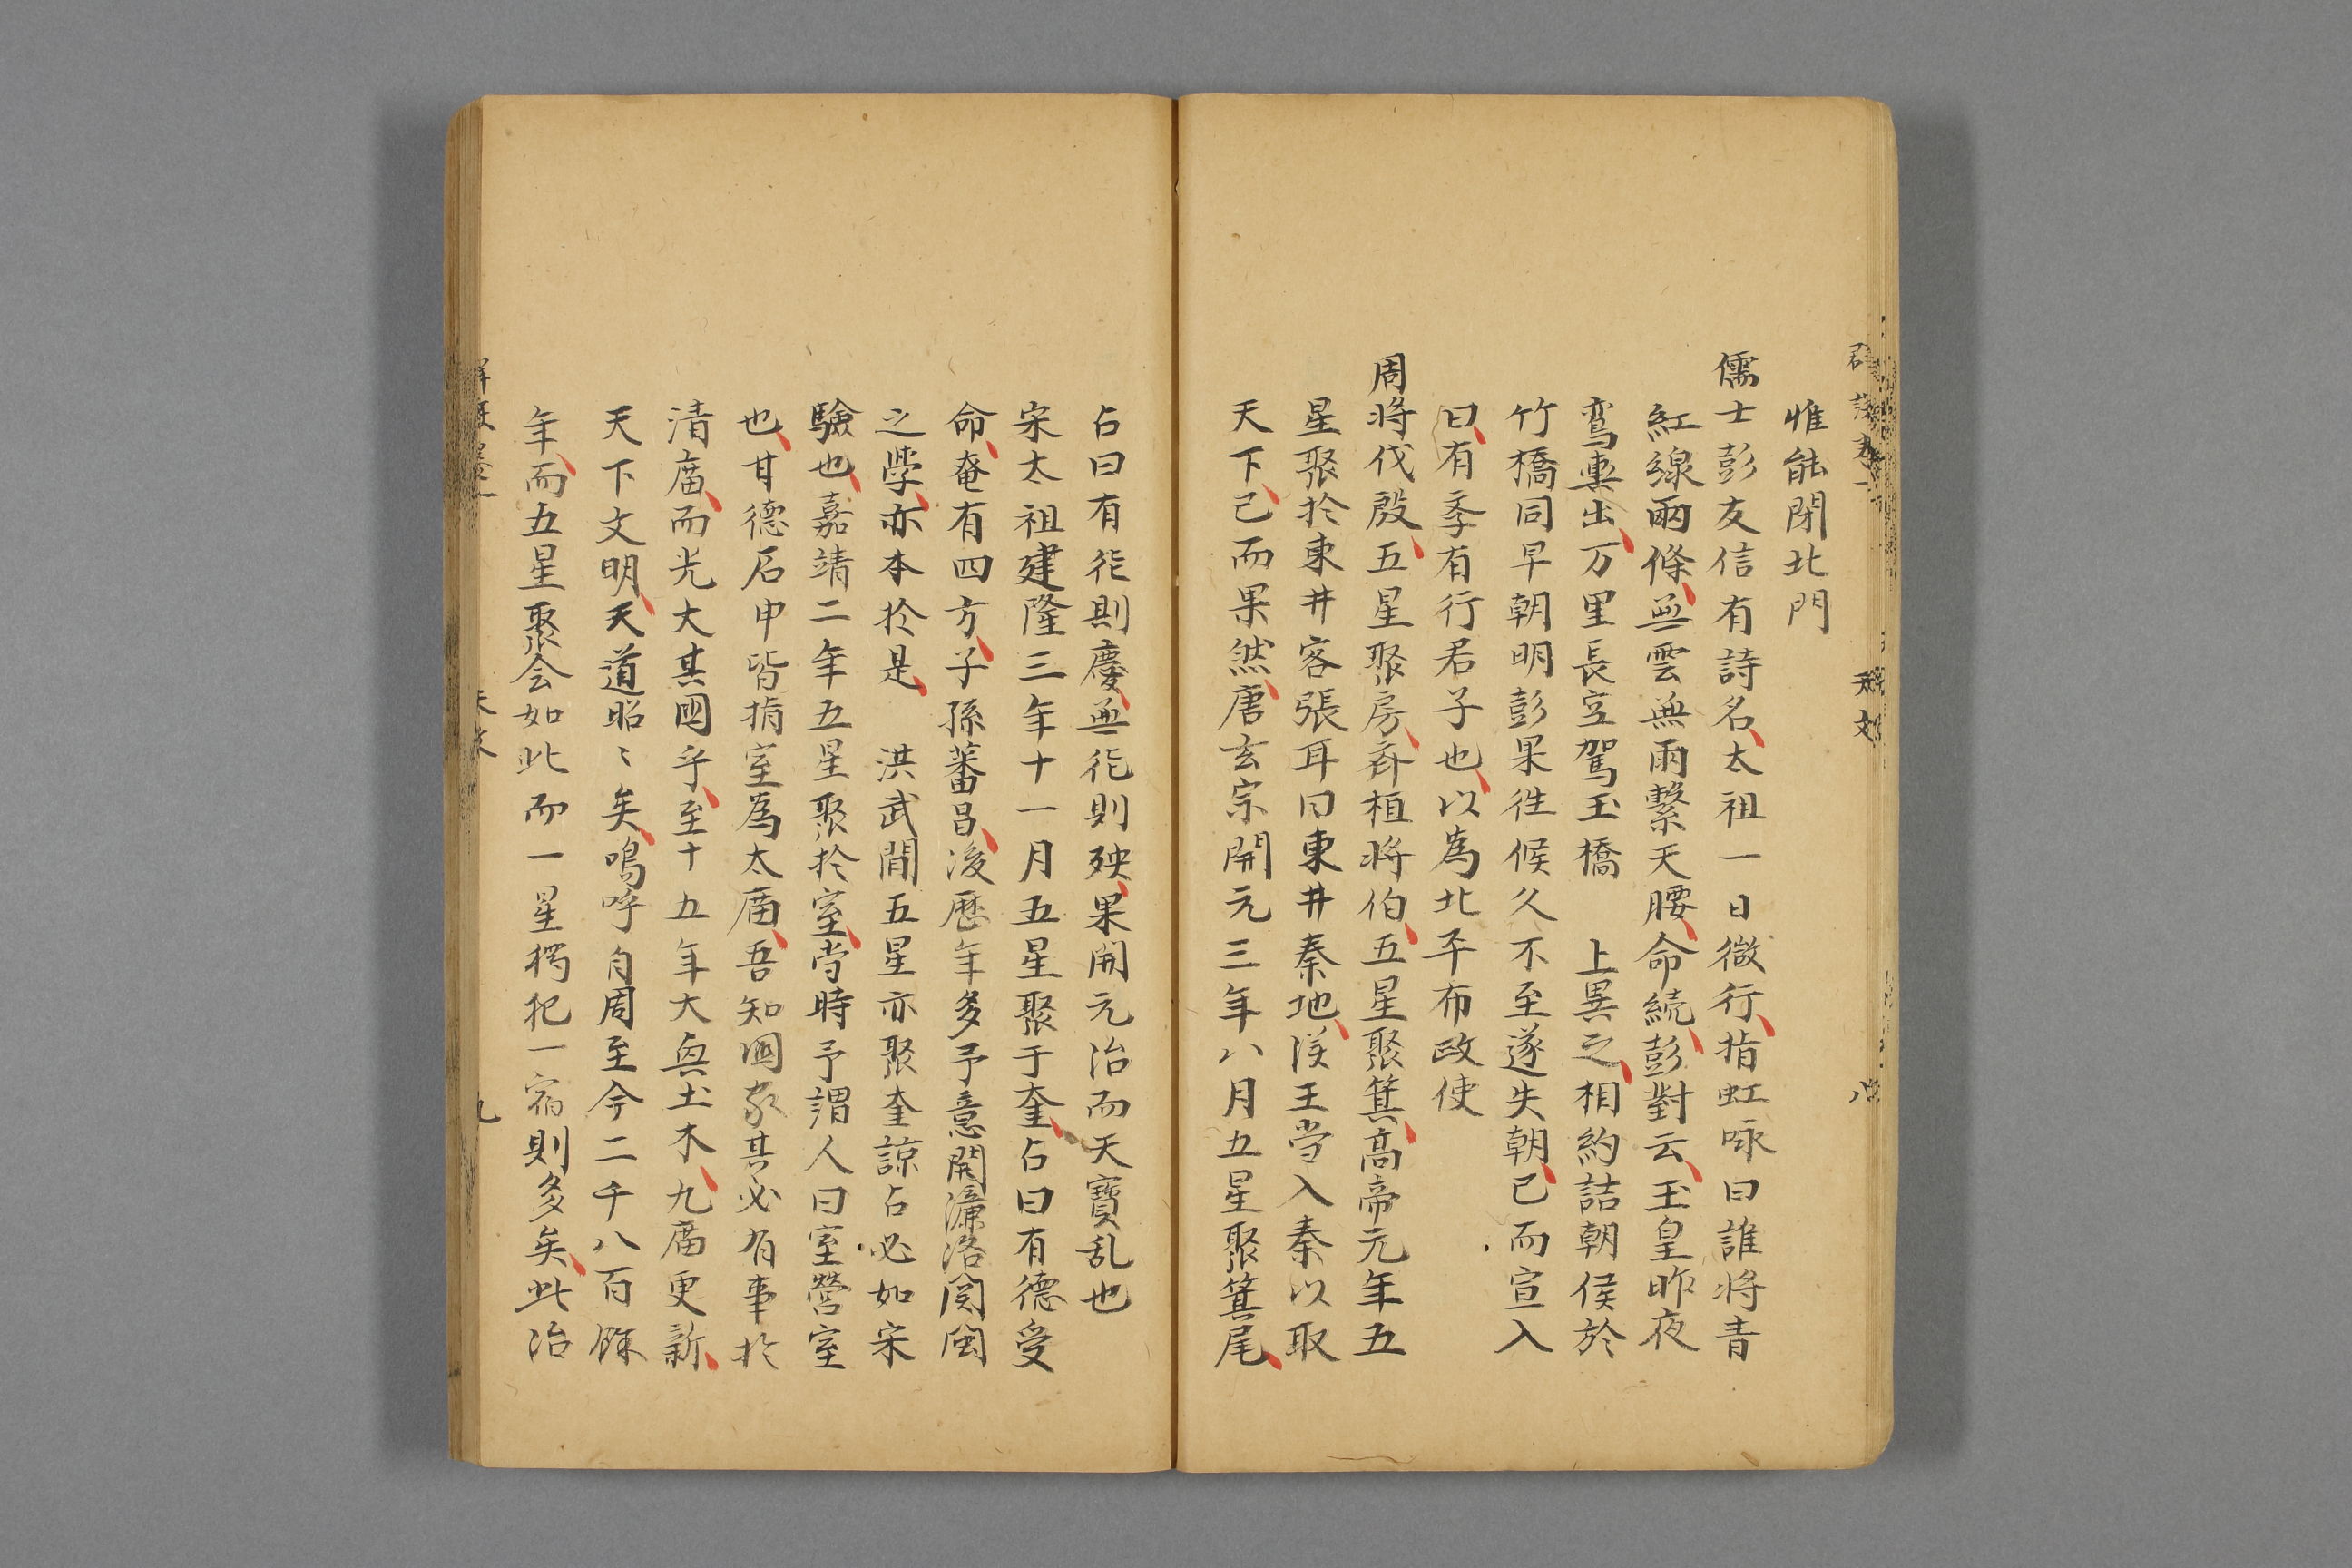 天文
八
惟能閉北門
儒士彭友信有詩名太祖一日微行指虹咏曰誰将青
紅線兩條無雲無雨繫天腰命続彭對云玉皇昨夜
鸞輿出万里長空駕玉橋　上異之相約詰朝候於
竹橋同早朝明彭果徃候久不至遂失朝已而宣入
曰有季有行君子也以為北平布政使
周将伐殷五星聚房斉桓将伯五星聚箕高帝元年五
星聚於東井客張耳曰東井秦地漢王當入秦以取
天下已而果然唐玄宗開元三年八月五星聚箕尾
占曰有徳則慶無徳則殃果開元治而天寶乱也
宋太祖建隆三年十一月五星聚于奎占曰有德受
命奄有四方子孫蕃昌後歷年多予意開濂洛関閩
之學亦本於是　洪武間五星亦聚奎諒占必如宋
驗也嘉靖二年五星聚於室當時予謂人曰室營室
也甘德石申皆指室為太廟吾知國家其必有事於
清廟而光大其國乎至十五年大興土木九廟更新
天下文明天道昭〻矣嗚呼自周至今二千八百餘
年而五星聚会如此而一星獨犯一宿則多矣此治